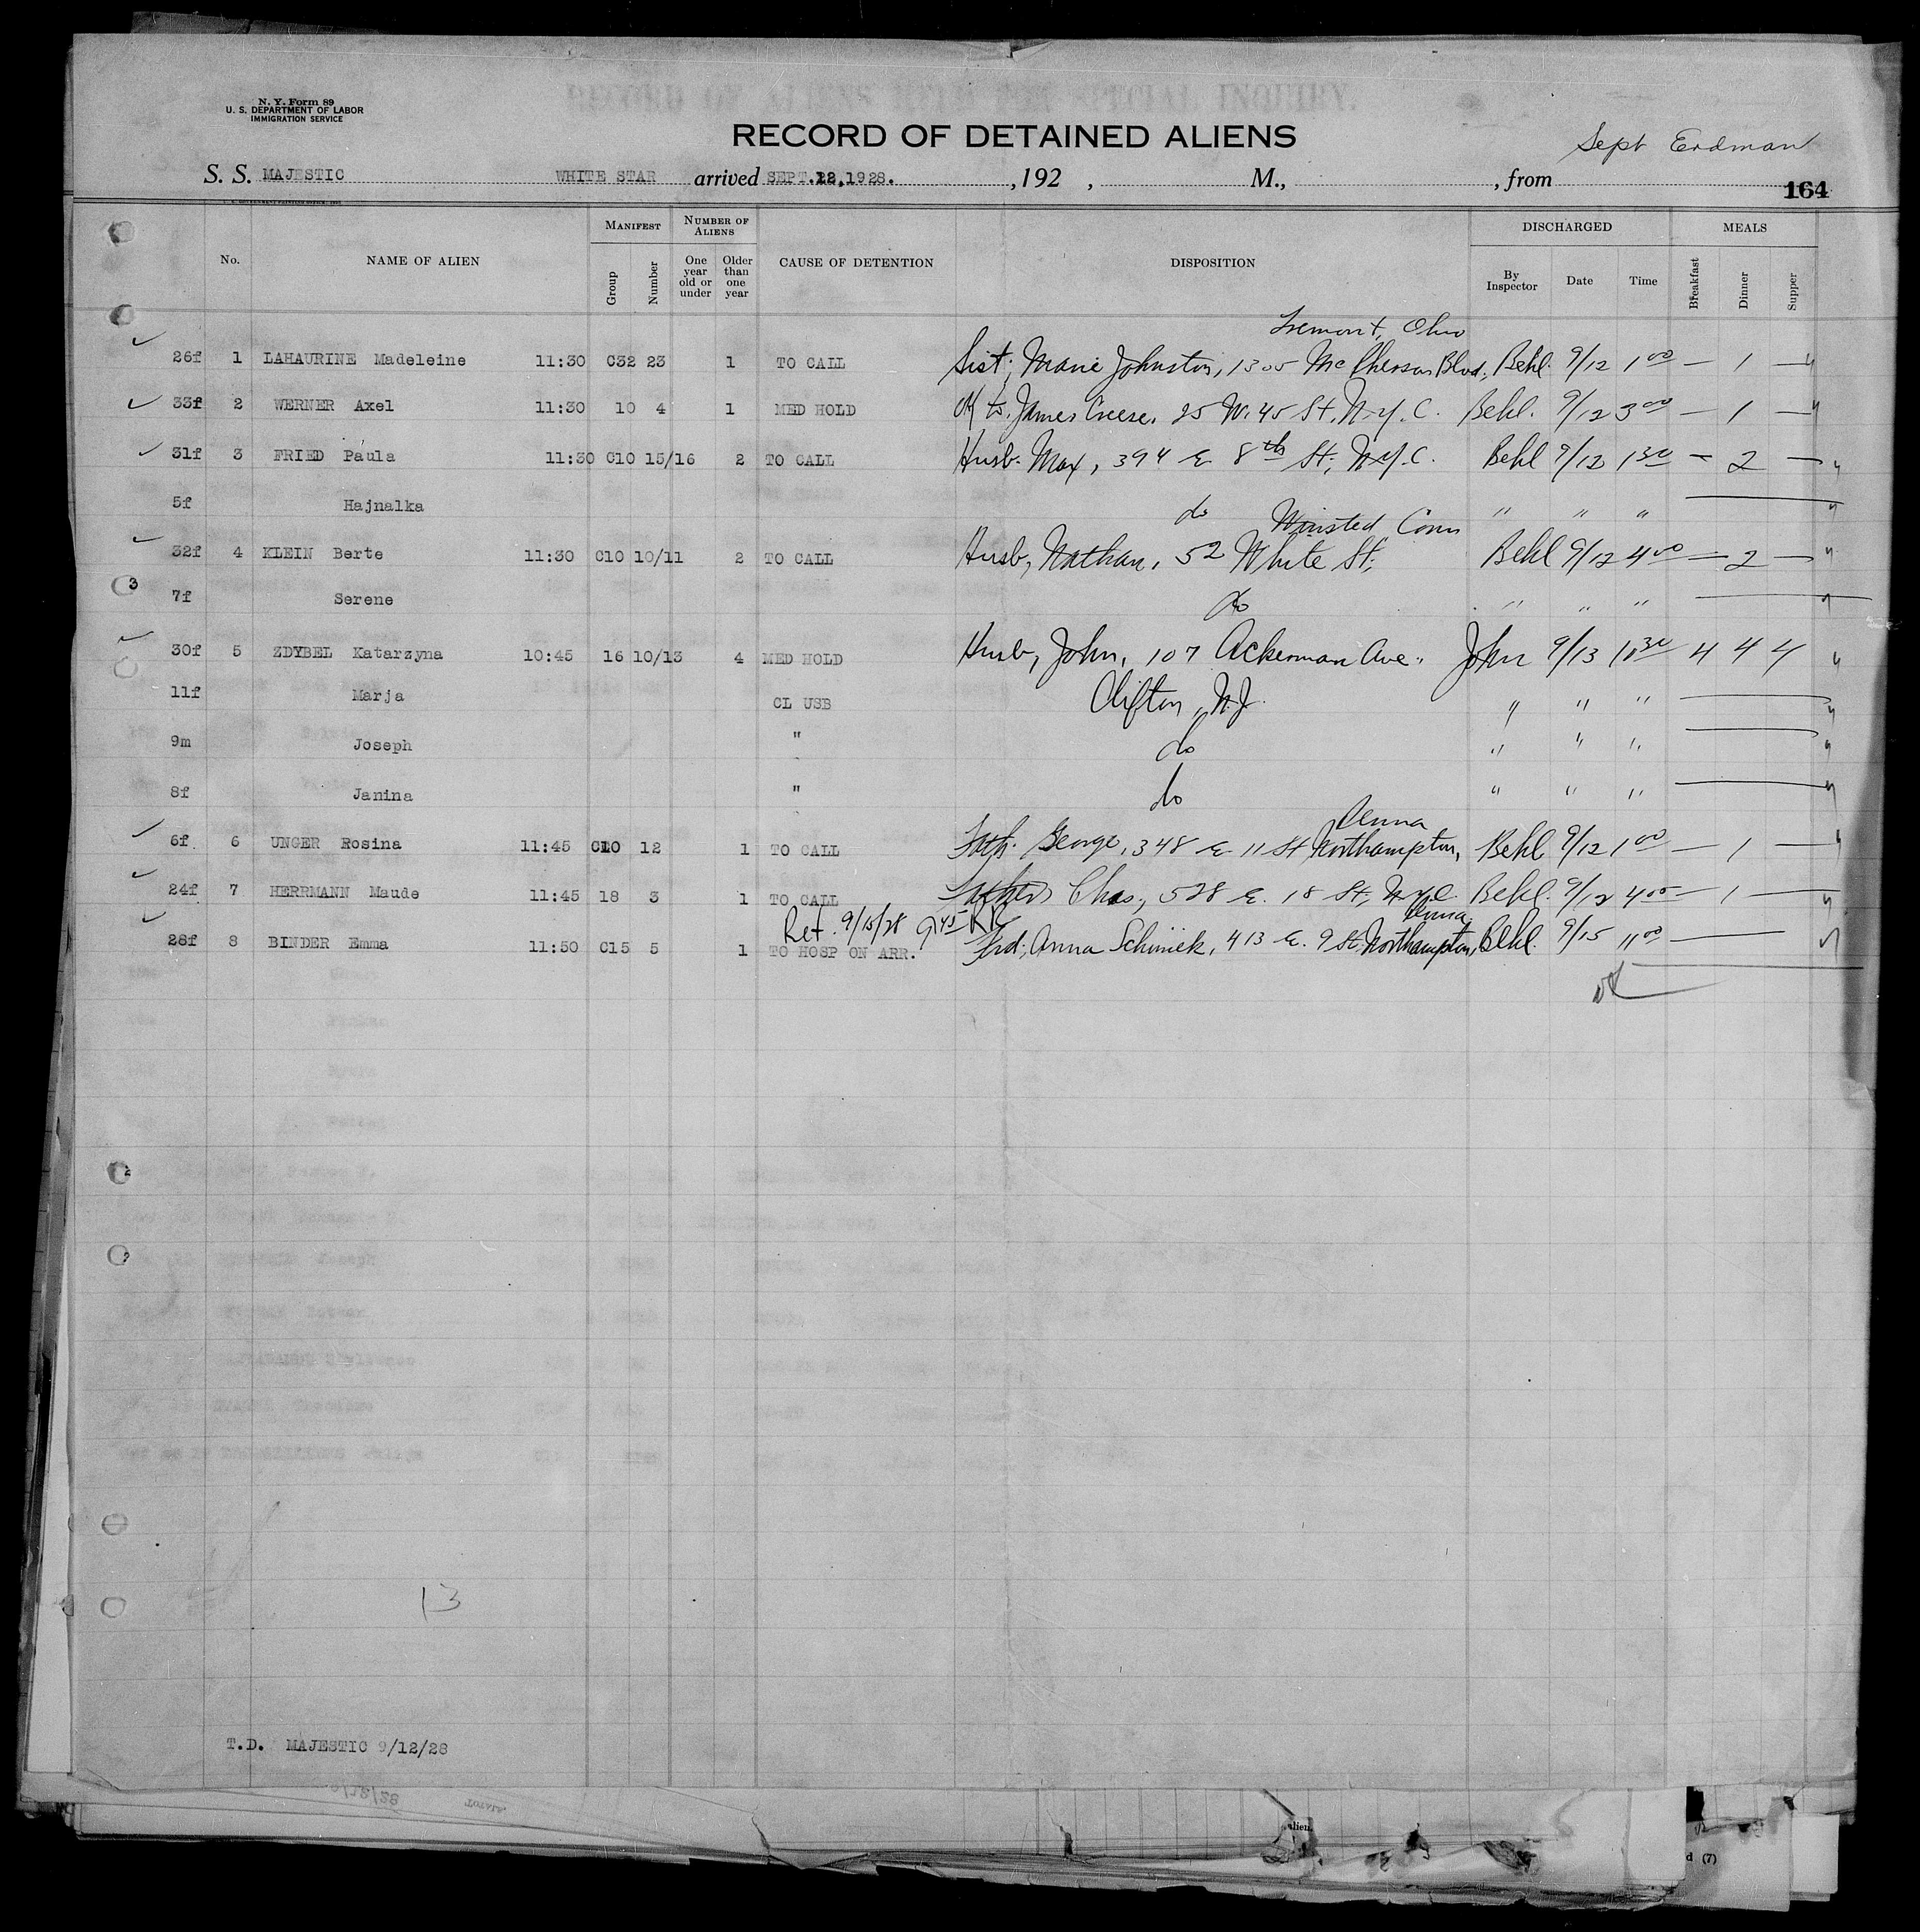 N. Y. Form 89
U. S. DEPARTMENT OF LABOR
IMMIGRATION SERVICE
RECORD OF DETAINED ALIENS
Sept Erdman
S. S. MAJESTIC WHITE STAR arrived SEPT.12,1928. , 192 , M., , from
164
No. NAME OF ALIEN MANIFEST Group Number NUMBER OF ALIENS One year old or under Older than one year CAUSE OF DETENTION DISPOSITION DISCHARGED By Inspector Date Time MEALS Breakfast Dinner Supper
Fremont, Ohio
26f 1 LAHAURINE Madeleine 11:30 C32 23 1 TO CALL Sist; Marie Johnston, 1305 McPherson Blvd, Behl. 9/12 1 00 — 1 —
33f 2 WERNER Axel 11:30 10 4 1 MED HOLD to James Creese, 25 W. 45 St, N.Y.C. Behl. 9/12 3 00 — 1 —
31f 3 FRIED Paula 11:30 C10 15/16 2 TO CALL Husb. Max, 394 E 8th St; N.Y.C. Behl 9/12 1 30 — 2 —
5f Hajnalka do " " "
Winsted Conn
32f 4 KLEIN Berte 11:30 C10 10/11 2 TO CALL Husb, Nathan, 52 White St; Behl 9/12 4 00 — 2 —
7f Serene do " " "
30f 5 ZDYBEL Katarzyna 10:45 16 10/13 4 MED HOLD Husb, John, 107 Ackerman Ave., John 9/13 10 30 4 4 4
11f Marja CL USB Clifton, N.J. " " "
9m Joseph " do " " "
8f Janina " do " " "
Penna
6f 6 UNGER Rosina 11:45 C10 12 1 TO CALL Fath. George, 348 E 11 St Northampton, Behl 9/12 1 00 — 1 —
24f 7 HERRMANN Maude 11:45 18 3 1 TO CALL Chas, 528 E. 18 St, N.Y.C. Behl. 9/12 4 00 — 1 —
Ret. 9/15/28 9 45 RR Penna
28f 8 BINDER Emma 11:50 C15 5 1 TO HOSP ON ARR. Frd; Anna Schimek, 413 E. 9 St. Northampton, Behl. 9/15 11 00 —
13
T.D. MAJESTIC 9/12/28